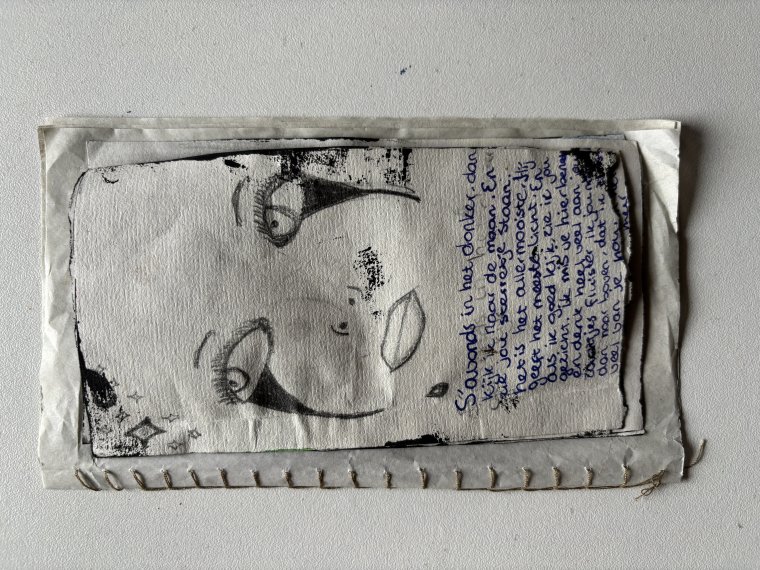 S'avonds in het donker, dan
kijk ik naar de maan. En
zie jou sterretje staan.
het is het allermooiste. Hij
geeft het meeste licht. En
als ik goed kijk, zie ik jou
gezicht. Ik mis je hier
en denk heel veel aan
Zhatjes fluister ik
dan naar boven dat ik
veel van je hou